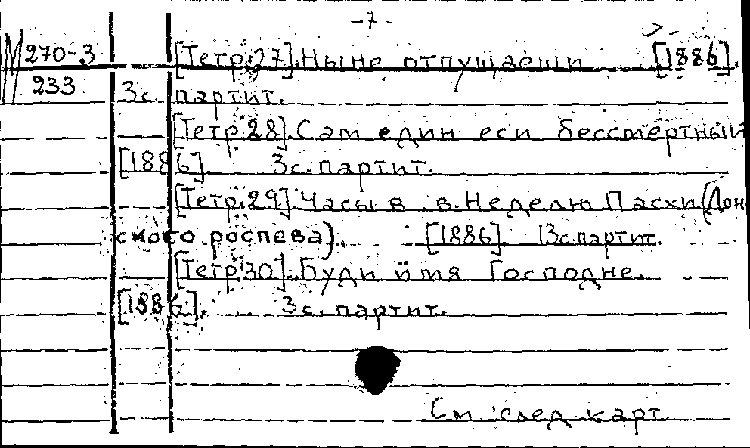 -7-
270-3 [Тетр.27]. Ныне отпущаеши [1886].
233 3с. партит.
[Тетр.28]. Сам един еси бессмертный
[1886]. 3с. партит.
[Тетр.29]. Часы в в. Неделю Пасхи (Дон-
ского роспева). [1886]. 3с. партит.
[Тетр.30]. Буди имя Господне.
[1886]. 3с. партит.
См. след. карт.